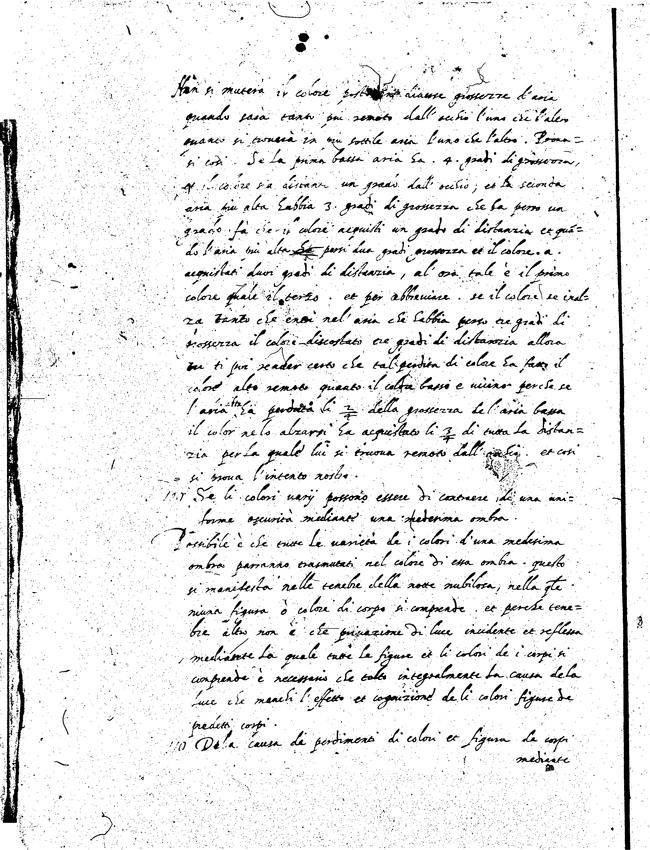 Non si muterà il colore posto in diverse grossezze d'aria
quando sarà tanto più remoto dall'occhio l'uno che l'altro
quanto si trouerà in più sottile aria l'uno che l'altro. Proua=
si così. Se la prima bassa aria ha .4. gradi di grossezza,
et il colore sia distante un grado dall'occhio, et la seconda
aria più alta habbia 3. gradi di grossezza che ha perso un
grado. fa che il colore acquisti un grado di distanzia et quã=
do l'aria più alta persi dua gradi grossezza et il colore .a.
acquistati duoi gradi di distanzia, al'ora tale è il primo
colore quale il terzo. et per abbreuiare. se il colore se inal=
za tanto che entri nel'aria che habbia perso tre gradi di
grossezza il colore discostato tre gradi di distanzia allora
tu ti poi render certo che tal perdita di colore ha fatto il
colore alto remoto quanto il colore basso e uicino perche se
l'aria alta ha perduta li 2/4 della grossezza de l'aria bassa
il color nelo alzarsi ha acquistato li 3/4 di tutta la distan=
zia per la quale lui si truoua remoto dall'occhio. et così
si proua l'intento nostro.
Se li colori varij possono essere di contraere di una uni=
forme oscurità mediante una medesima ombra.
Possibile è che tutte le varietà de i colori d'una medesima
ombra parranno trasmutati nel colore di essa ombra. questo
si manifesta nelle tenebre della notte nubilosa, nella qle
niuna figura ò colore di corpo si comprende. et perche tene=
bre altro non è che priuazione di luce incidente et reflessa
mediante la quale tutte le figure et li colori de i corpi si
comprende è necessario che tolto integralmente la causa dela
luce che manchi l'effetto et cognizione de li colori figure de
predetti corpi.
Dela causa de perdimenti di colori et figura de corpi
mediante